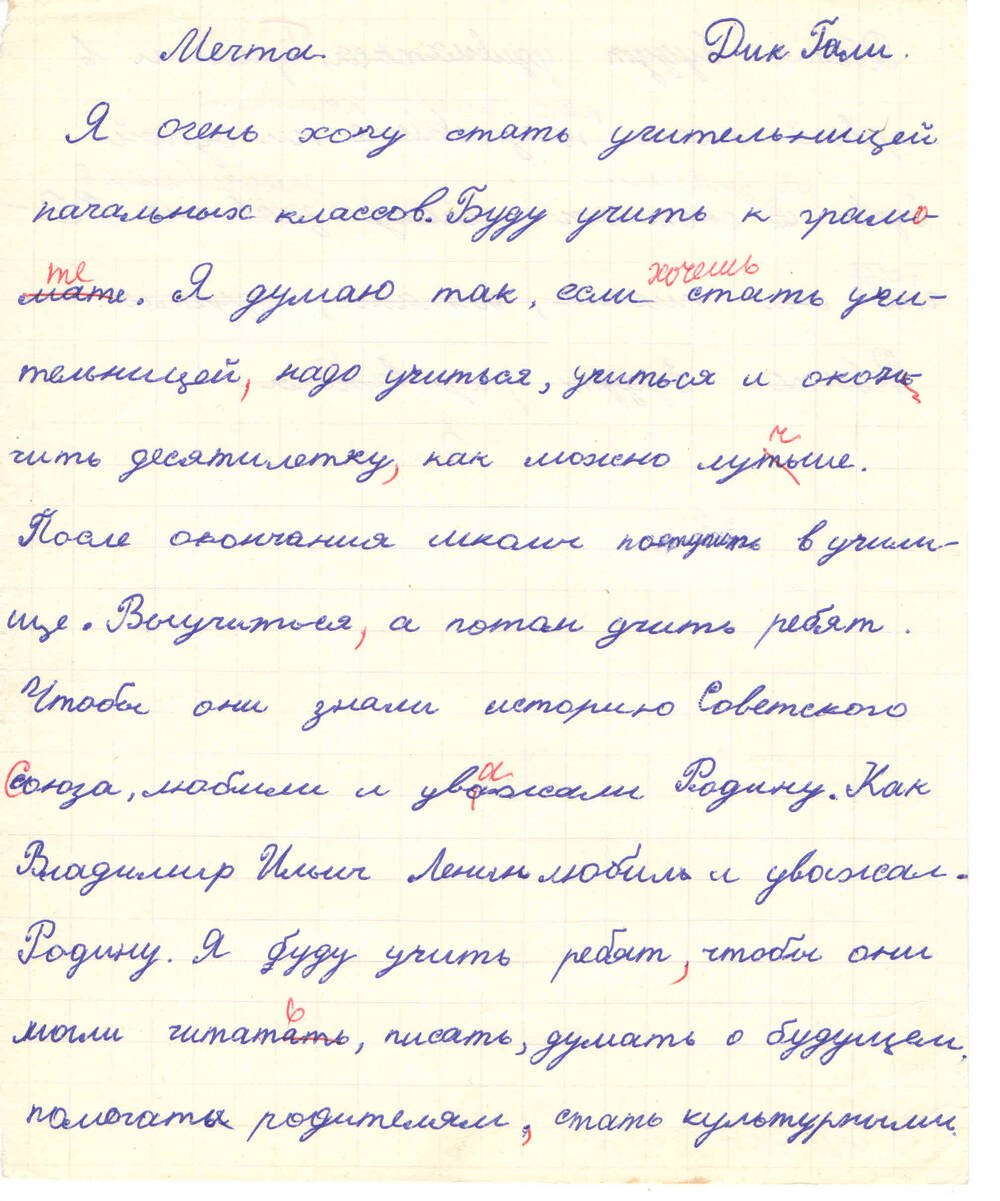 Мечта. Дик Гали.
Я очень хочу стать учительницей
начальных классов. Буду учить к грамо-
те
мате. Я думаю так, если хочешь стать учи-
тельницей, надо учиться, учиться и оконь-
чить десятилетку, как можно лутьше.
После окончания школы поступить в учили-
ще. Выучиться, а потом учить ребят.
Чтобы они знали историю Советского
Союза, любили и уважали Родину. Как
Владимир Ильич Ленин любиль и уважал
Родину. Я буду учить ребят, чтобы они
могли читатать, писать, думать о будущем.
помогать родителям, стать культурными.